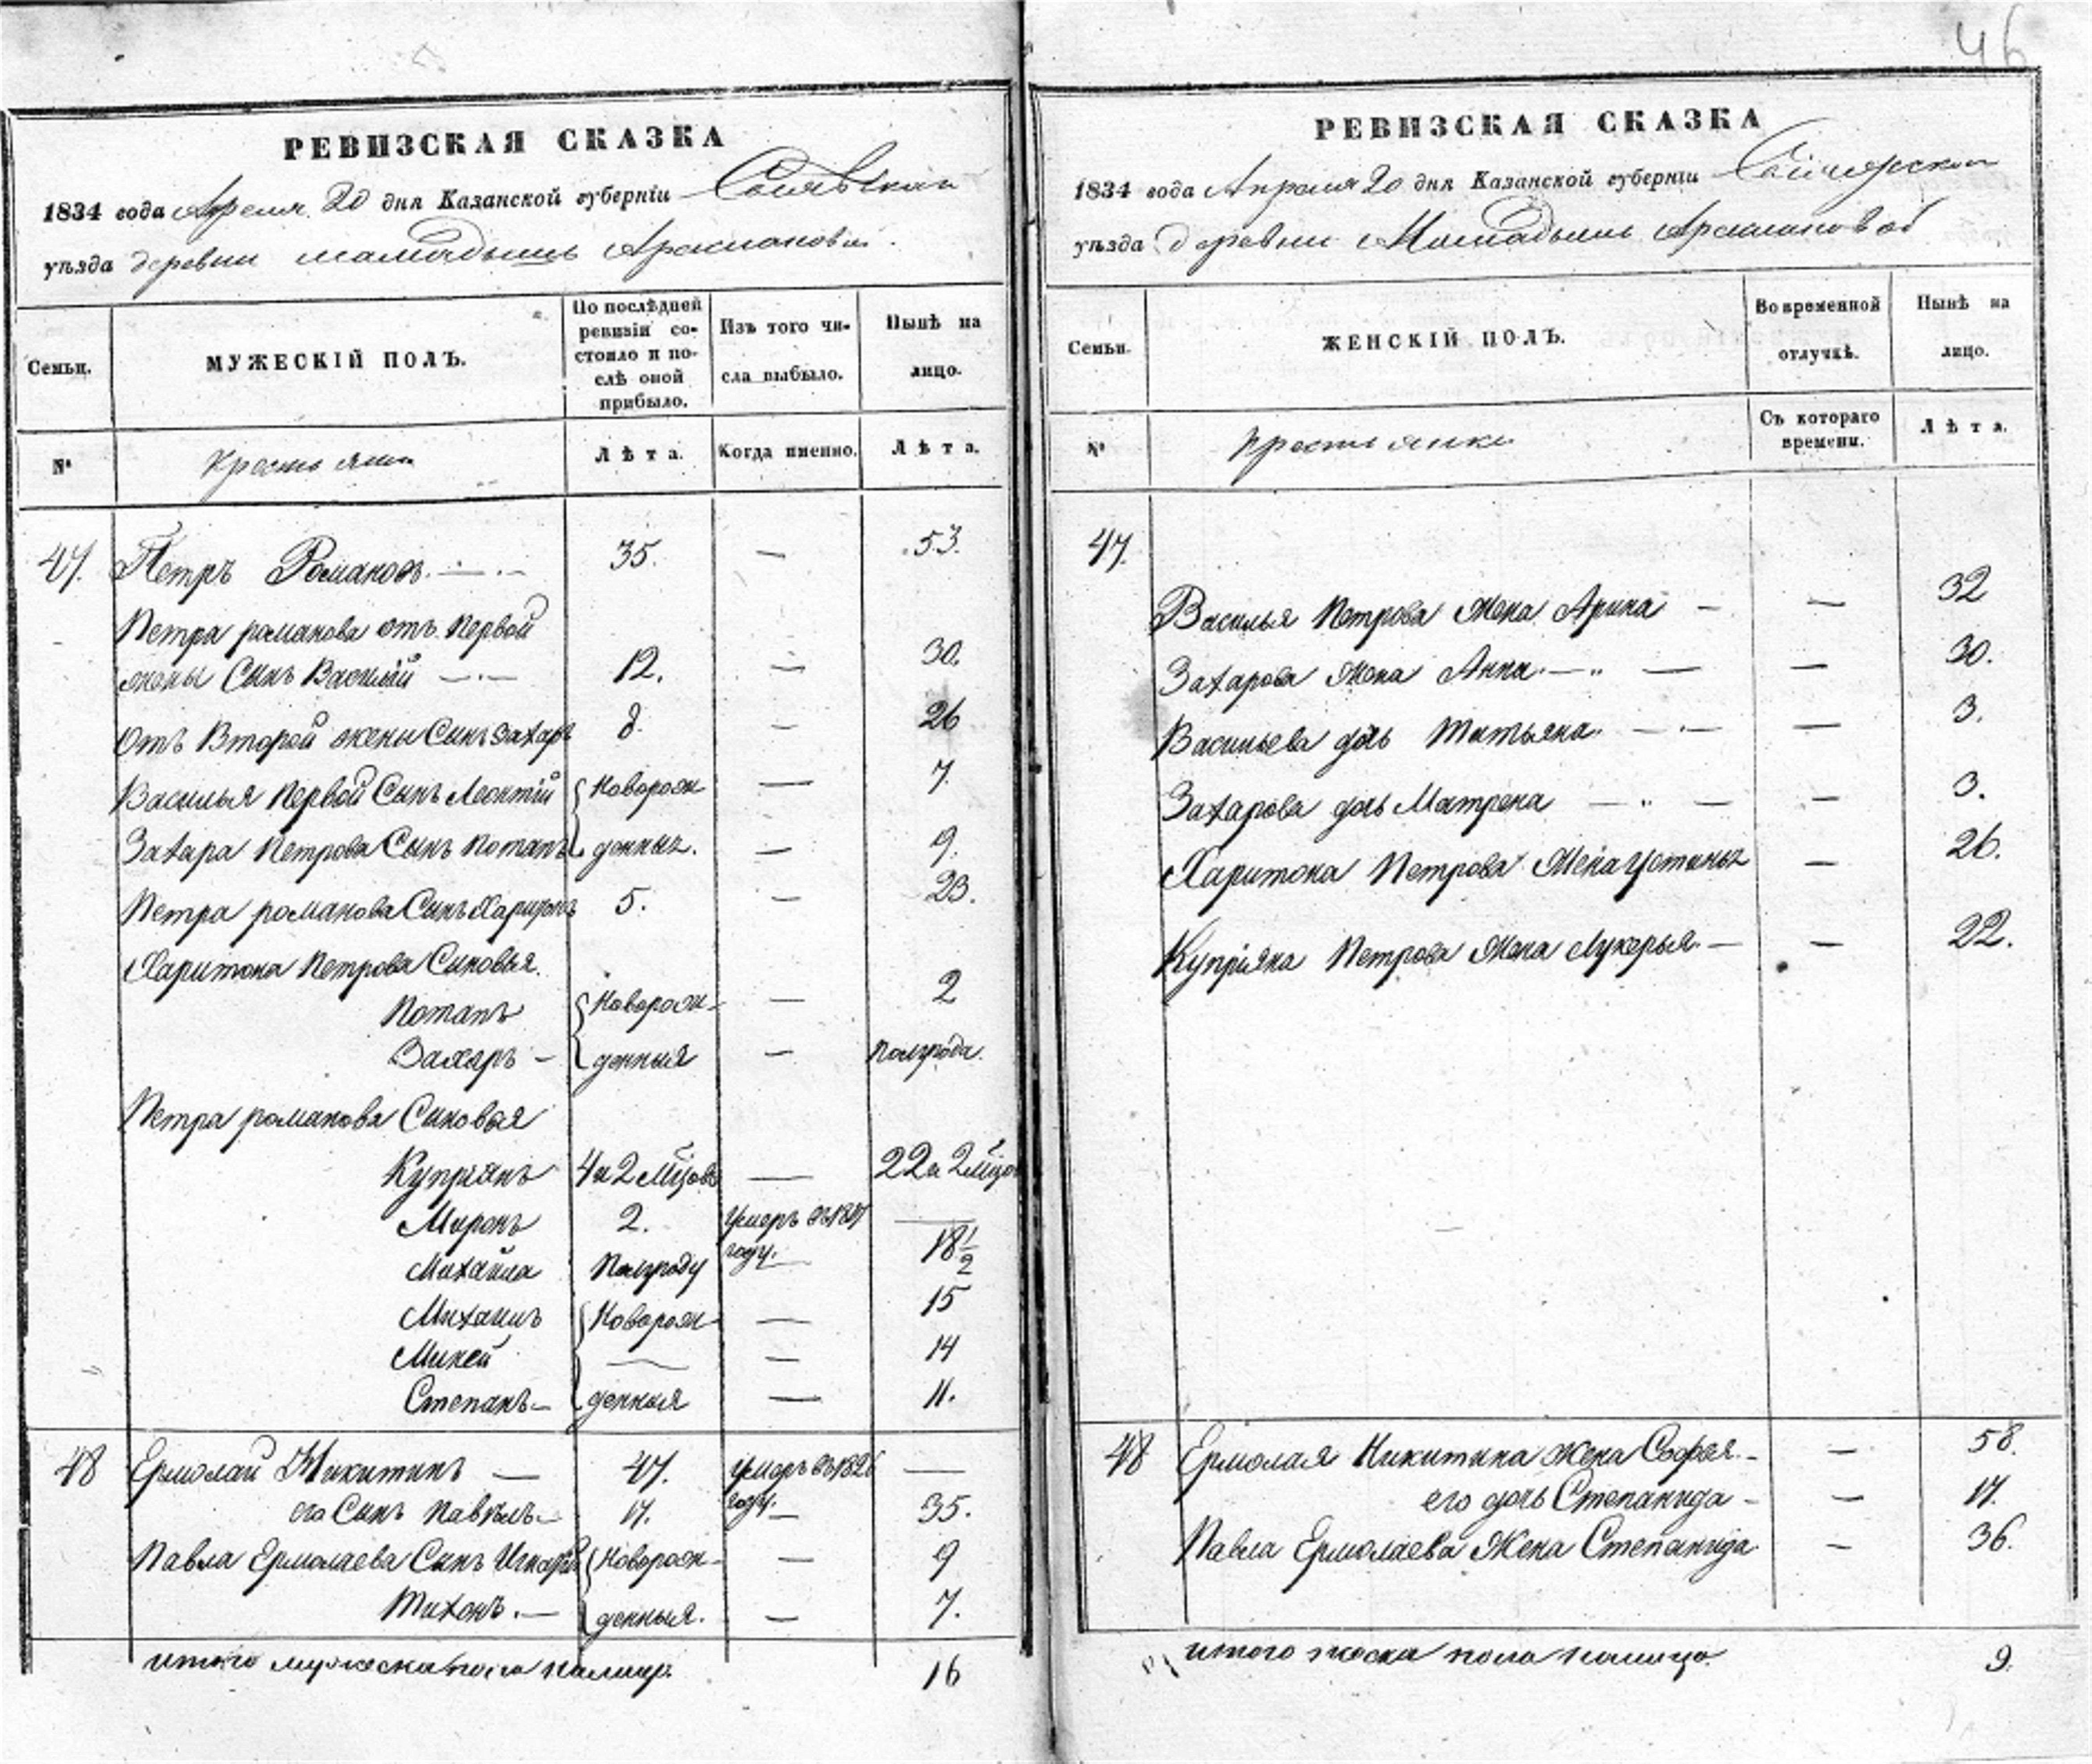 46
РЕВИЗСКАЯ СКАЗКА
1834 года Апреля 20 дня Казанской губерніи
уѣзда деревни
Семьи.
МУЖЕСКІЙ ПОЛЪ.
По послѣдней ревизіи со-
стояло и по-
слѣ оной
прибыло.
Изъ того чи-
сла выбыло.
Нынѣ на
лицо.
№
Крестьяне
Лѣта.
Когда именно.
Лѣта.
47. Петръ Романовъ 35. — 53.
Петра романова отъ Первой
жены Сынъ Василій 12. — 30.
Отъ Второй жены Сынъ Захаръ 8. — 26
Василья Первой Сынъ Леонтій Новорож — 7.
Захара Петрова Сынъ Потапъ денныя. — 9.
Петра романова Сынъ Харитонъ 5. — 23.
Харитона Петрова Сыновья.
Потапъ Новорож- — 2
Захаръ — денныя — полгода.
Петра романова Сыновья
Купріянъ 4 и 2 мѣсця — 22 и 2 мѣсця
Миронъ 2. Умеръ въ —
году.
Михайла Полгоду — 18 1/2
Михаилъ Новорож- — 15
Микей — — 14
Степанъ — денныя — 11.
48 Ермолай Никитинъ — 47. Умеръ въ 1826 —
году.
его Сынъ Павѣлъ — 17. — 35.
Павла Ермолаева Сынъ Новорож- — 9
Тихонъ. — денныя. — 7.
итого мужеска пола налицо 16
РЕВИЗСКАЯ СКАЗКА
1834 года Апреля 20 дня Казанской губерніи
уѣзда деревни
Семьи.
ЖЕНСКІЙ ПОЛЪ.
Во временной
отлучкѣ.
Нынѣ на
лицо.
№
Крестьянки
Съ котораго
времени.
Лѣта.
47.
Василья Петрова Жена Арина — — 32
Захарова Жена Анна — — 30.
Васильева дочь Татьяна — — 3.
Захарова дочь Матрена — — 3.
Харитона Петрова Жена Устинья — 26.
Купріяна Петрова Жена Лукерья — — 22.
48 Ермолая Никитина жена Софья — — 58.
его дочь Степанида — — 17.
Павла Ермолаева Жена Степанида — 36.
итого женска пола налицо 9.